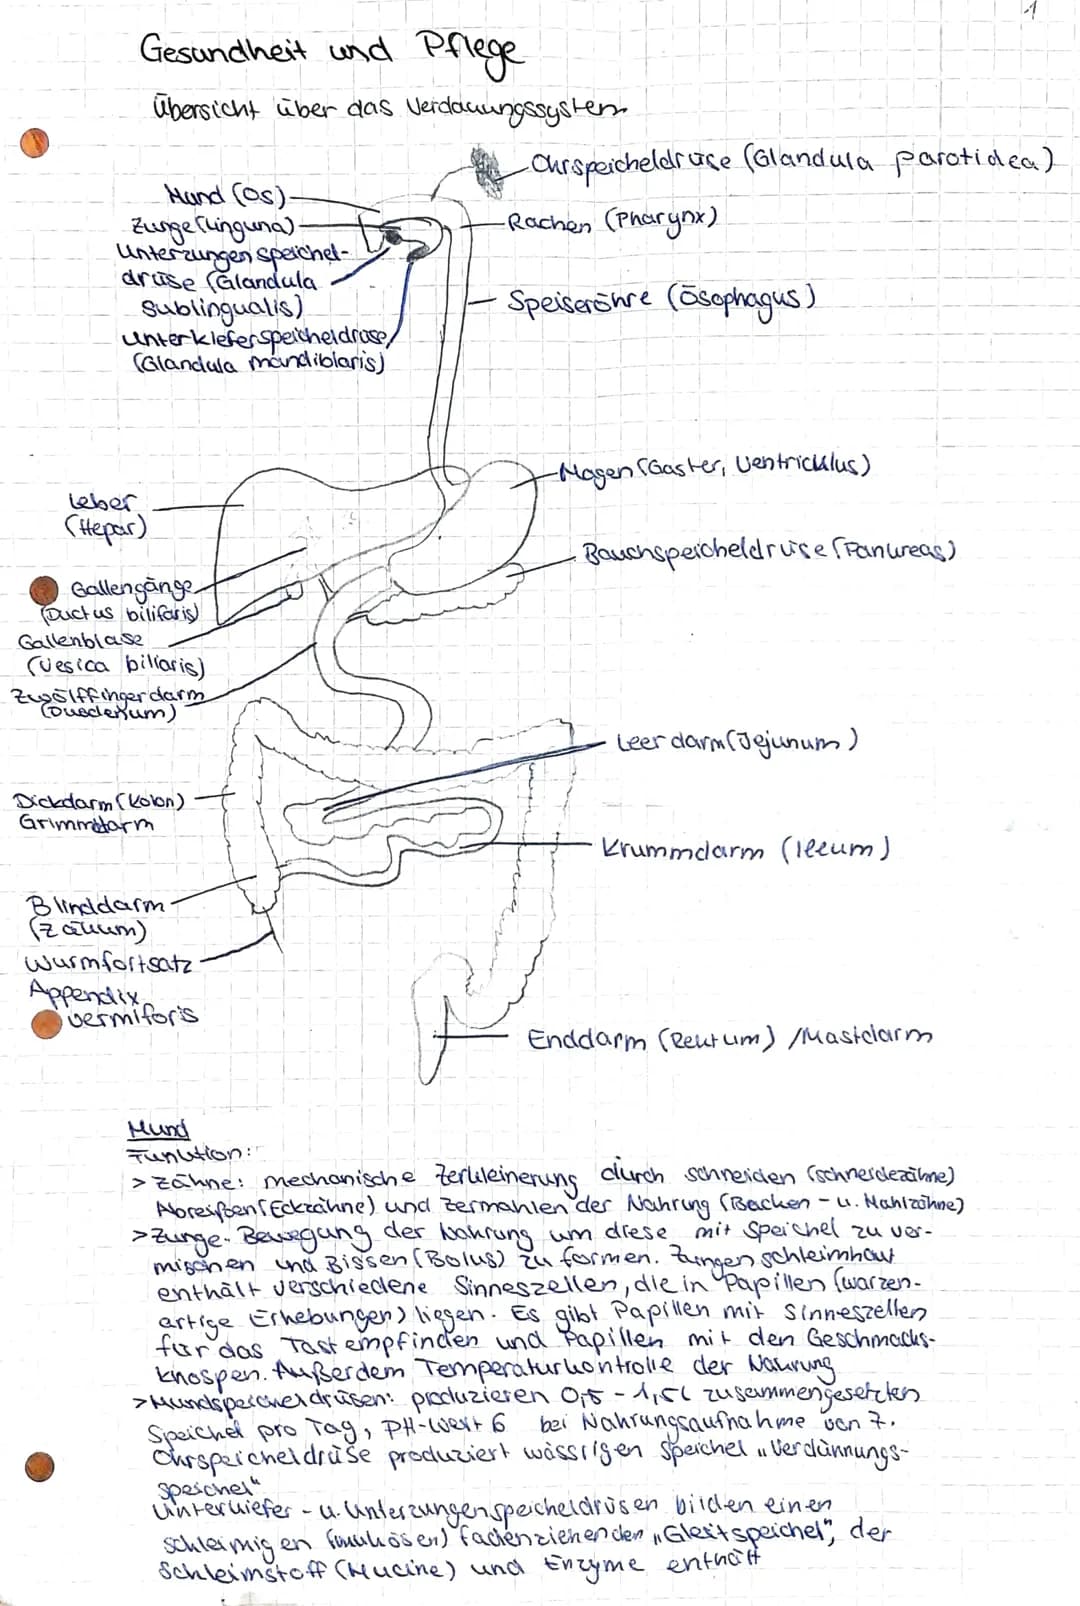 1
Gesundheit und Pflege
Übersicht über das Verdauungssystem
Ohrspeicheldrüse (Glandula parotidea)
Mund (Os)
Zunge (Linguna)
Rachen (Pharynx)
Unterzungenspeichel-
drüse (Glandula
sublingualis)
Speiseröhre (Ösophagus)
Unterkieferspeicheldrüse
(Glandula mandiblaris)
Magen (Gaster, Ventricklus)
Leber
(Hepar)
Bauchspeicheldrüse (Pankreas)
Gallengänge
(Ductus bilifaris)
Gallenblase
(Vesica billiaris)
Zwölffingerdarm
(Duodenum)
Leerdarm (Jejunum)
Dickdarm (Kolon)
Grimmdarm
Krummdarm (Ileum)
Blinddarm
(Zäkum)
Wurmfortsatz
Appendix
vermiforis
Enddarm (Rektum) /Mastdarm
Mund
Funktion:
> Zähne: mechanische Zerkleinerung durch schneiden (Schneidezähne)
Abreißen (Eckzähne) und Zermahlen der Nahrung (Backen - u. Mahlzähne)
> Zunge: Bewegung der Nahrung um diese mit Speichel zu ver-
mischen und Bissen (Bolus) zu formen. Zungenschleimhaut
enthält verschiedene Sinneszellen, die in Papillen (warzen-
artige Erhebungen) liegen. Es gibt Papillen mit Sinneszellen
für das Tastempfinden und Papillen mit den Geschmacks-
knospen. Außerdem Temperaturkontrolle der Nahrung
> Mundspeicheldrüsen: produzieren 0,5 - 1,5l zusammengesetzten
Speichel pro Tag, PH-Wert 6 bei Nahrungsaufnahme von 7.
Ohrspeicheldrüse produziert wässrigen Speichel „Verdünnungs-
speichel"
Unterkiefer - u. Unterzungenspeicheldrüsen bilden einen
schleimigen (mukösen) fadenziehenden „Gleitspeichel", der
Schleimstoff (Mucine) und Enzyme enthält